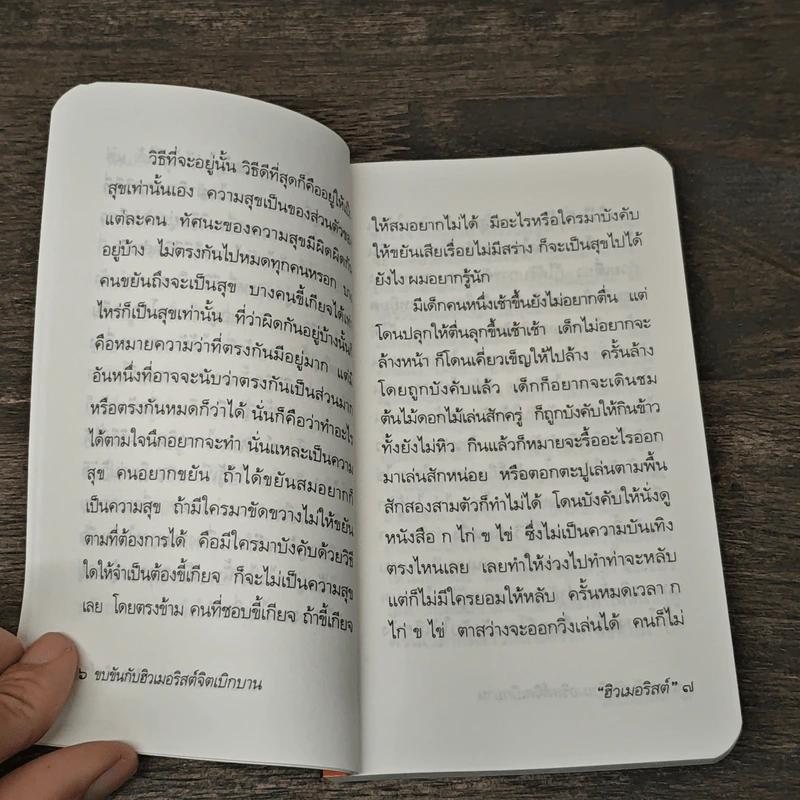 วิธีที่จะอยู่นั้น วิธีดีที่สุดก็คืออยู่ให้เป็น
สุขเท่านั้นเอง ความสุขเป็นของส่วนตัวของ
แต่ละคน ทัศนะของความสุขมีผิดผิดกัน
อยู่บ้าง ไม่ตรงกันไปหมดทุกคนหรอก บาง
คนขยันถึงจะเป็นสุข บางคนขี้เกียจได้เท่า
ไหร่ก็เป็นสุขเท่านั้น ที่ว่าผิดกันอยู่บ้างนั้นก็
คือหมายความว่าที่ตรงกันมีอยู่มาก แต่มี
อันหนึ่งที่อาจจะนับว่าตรงกันเป็นส่วนมาก
หรือตรงกันหมดก็ว่าได้ นั่นก็คือว่าทำอะไร
ได้ตามใจนึกอยากจะทำ นั่นแหละเป็นความ
สุข คนอยากขยัน ถ้าได้ขยันสมอยากก็
เป็นความสุข ถ้ามีใครมาขัดขวางไม่ให้ขยัน
ตามที่ต้องการได้ คือมีใครมาบังคับด้วยวิธี
ใดให้จำเป็นต้องขี้เกียจ ก็จะไม่เป็นความสุข
เลย โดยตรงข้าม คนที่ชอบขี้เกียจ ถ้าขี้เกียจ
๖ ขบขันกับฮิวเมอริสต์จิตเบิกบาน
ให้สมอยากไม่ได้ มีอะไรหรือใครมาบังคับ
ให้ขยันเสียเรื่อยไม่มีสร่าง ก็จะเป็นสุขไปได้
ยังไง ผมอยากรู้นัก
มีเด็กคนหนึ่งเช้าขึ้นยังไม่อยากตื่น แต่
โดนปลุกให้ตื่นลุกขึ้นเช้าเช้า เด็กไม่อยากจะ
ล้างหน้า ก็โดนเคี่ยวเข็ญให้ไปล้าง ครั้นล้าง
โดยถูกบังคับแล้ว เด็กก็อยากจะเดินชม
ต้นไม้ดอกไม้เล่นสักครู่ ก็ถูกบังคับให้กินข้าว
ทั้งยังไม่หิว กินแล้วก็หมายจะรื้ออะไรออก
มาเล่นสักหน่อย หรือตอกตะปูเล่นตามพื้น
สักสองสามตัวก็ทำไม่ได้ โดนบังคับให้นั่งดู
หนังสือ ก ไก่ ข ไข่ ซึ่งไม่เป็นความบันเทิง
ตรงไหนเลย เลยทำให้ง่วงไปทำท่าจะหลับ
แต่ก็ไม่มีใครยอมให้หลับ ครั้นหมดเวลา ก
ไก่ ข ไข่ ตาสว่างจะออกวิ่งเล่นได้ คนก็ไม่
“ฮิวเมอริสต์” ๗